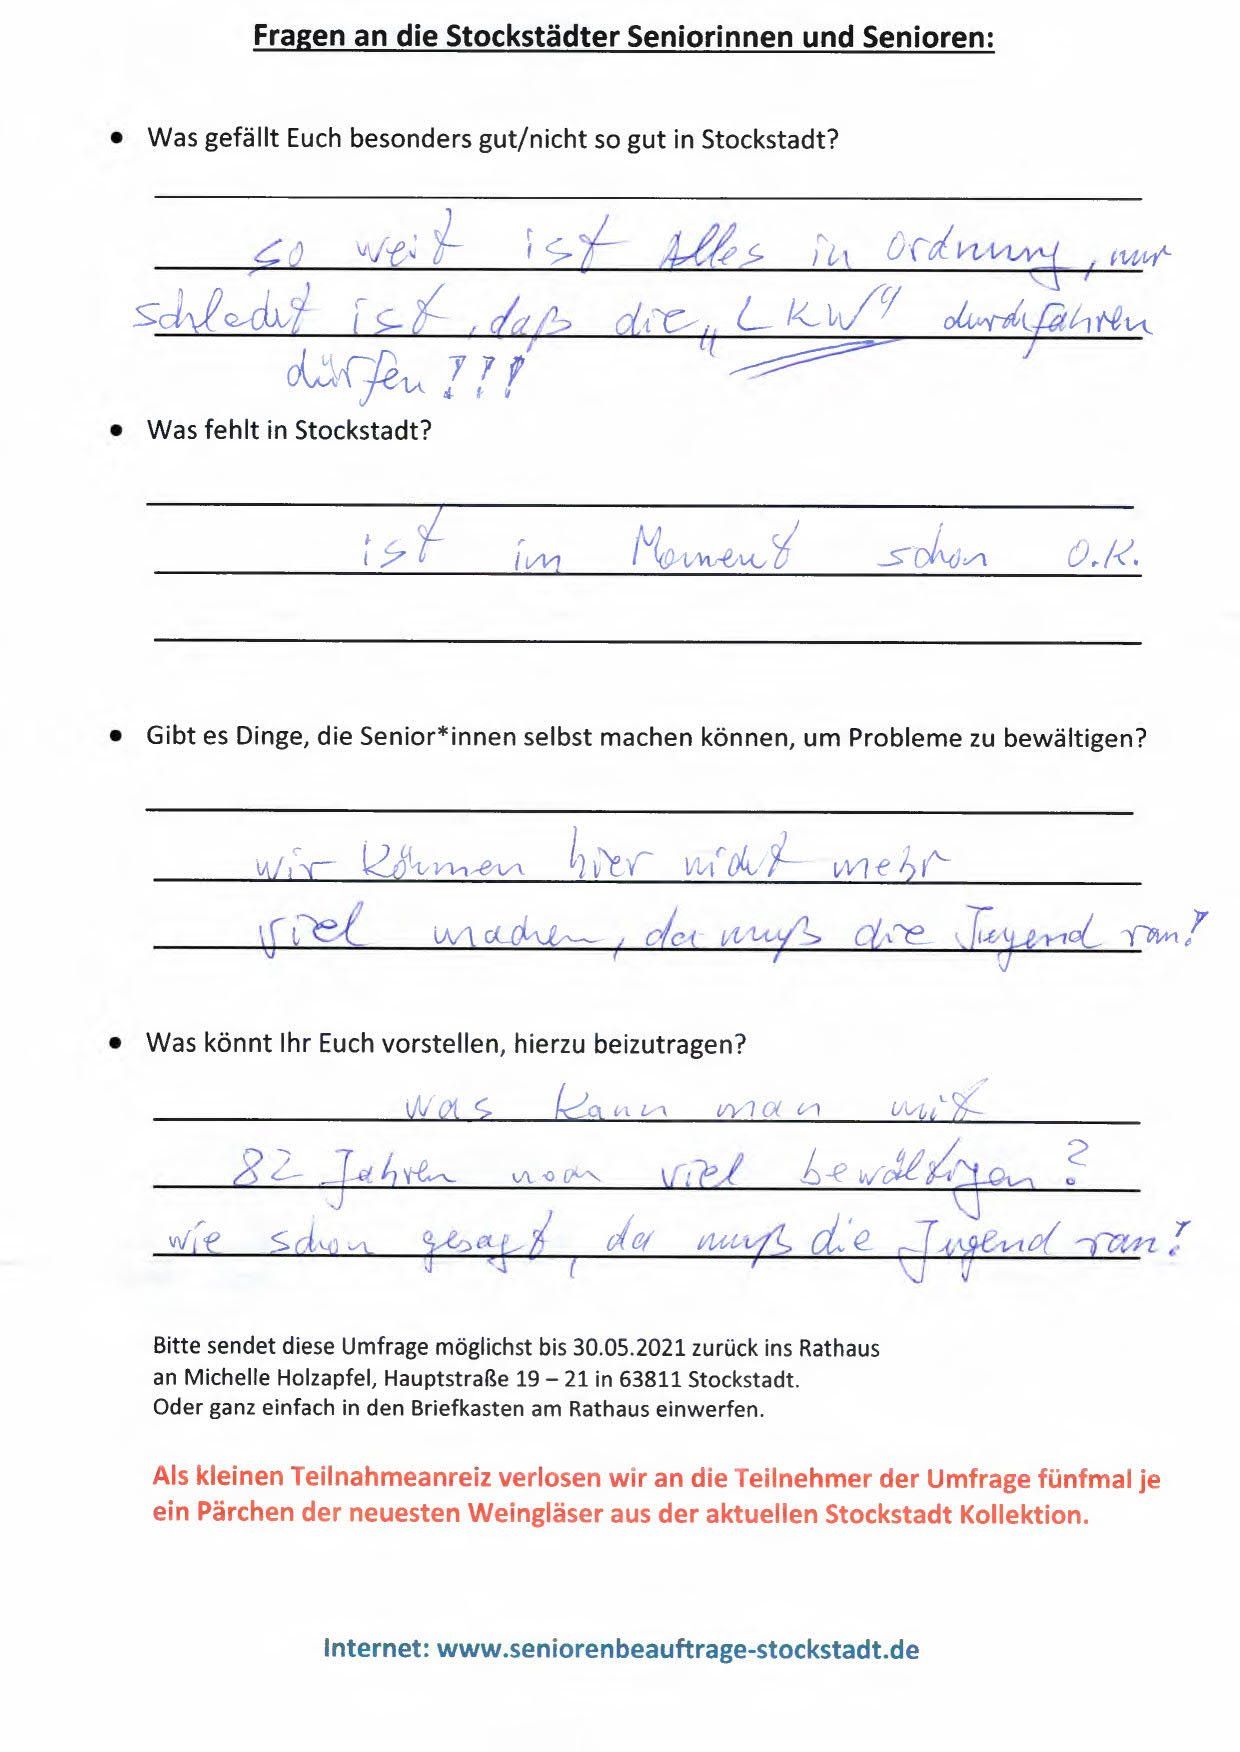 Fragen an die Stockstädter Seniorinnen und Senioren:
• Was gefällt Euch besonders gut/nicht so gut in Stockstadt?
so weit ist Alles in Ordnung, nur
schlecht ist, daß die „LKW“ durchfahren
dürfen!!!
• Was fehlt in Stockstadt?
ist im Moment schon O.K.
• Gibt es Dinge, die Senior*innen selbst machen können, um Probleme zu bewältigen?
wir können hier nicht mehr
viel machen, da muß die Jugend ran!
• Was könnt Ihr Euch vorstellen, hierzu beizutragen?
was kann man mit
82 Jahren noch viel bewältigen?
wie schon gesagt, da muß die Jugend ran!
Bitte sendet diese Umfrage möglichst bis 30.05.2021 zurück ins Rathaus
an Michelle Holzapfel, Hauptstraße 19 – 21 in 63811 Stockstadt.
Oder ganz einfach in den Briefkasten am Rathaus einwerfen.
Als kleinen Teilnahmeanreiz verlosen wir an die Teilnehmer der Umfrage fünfmal je
ein Pärchen der neuesten Weingläser aus der aktuellen Stockstadt Kollektion.
Internet: www.seniorenbeauftrage-stockstadt.de